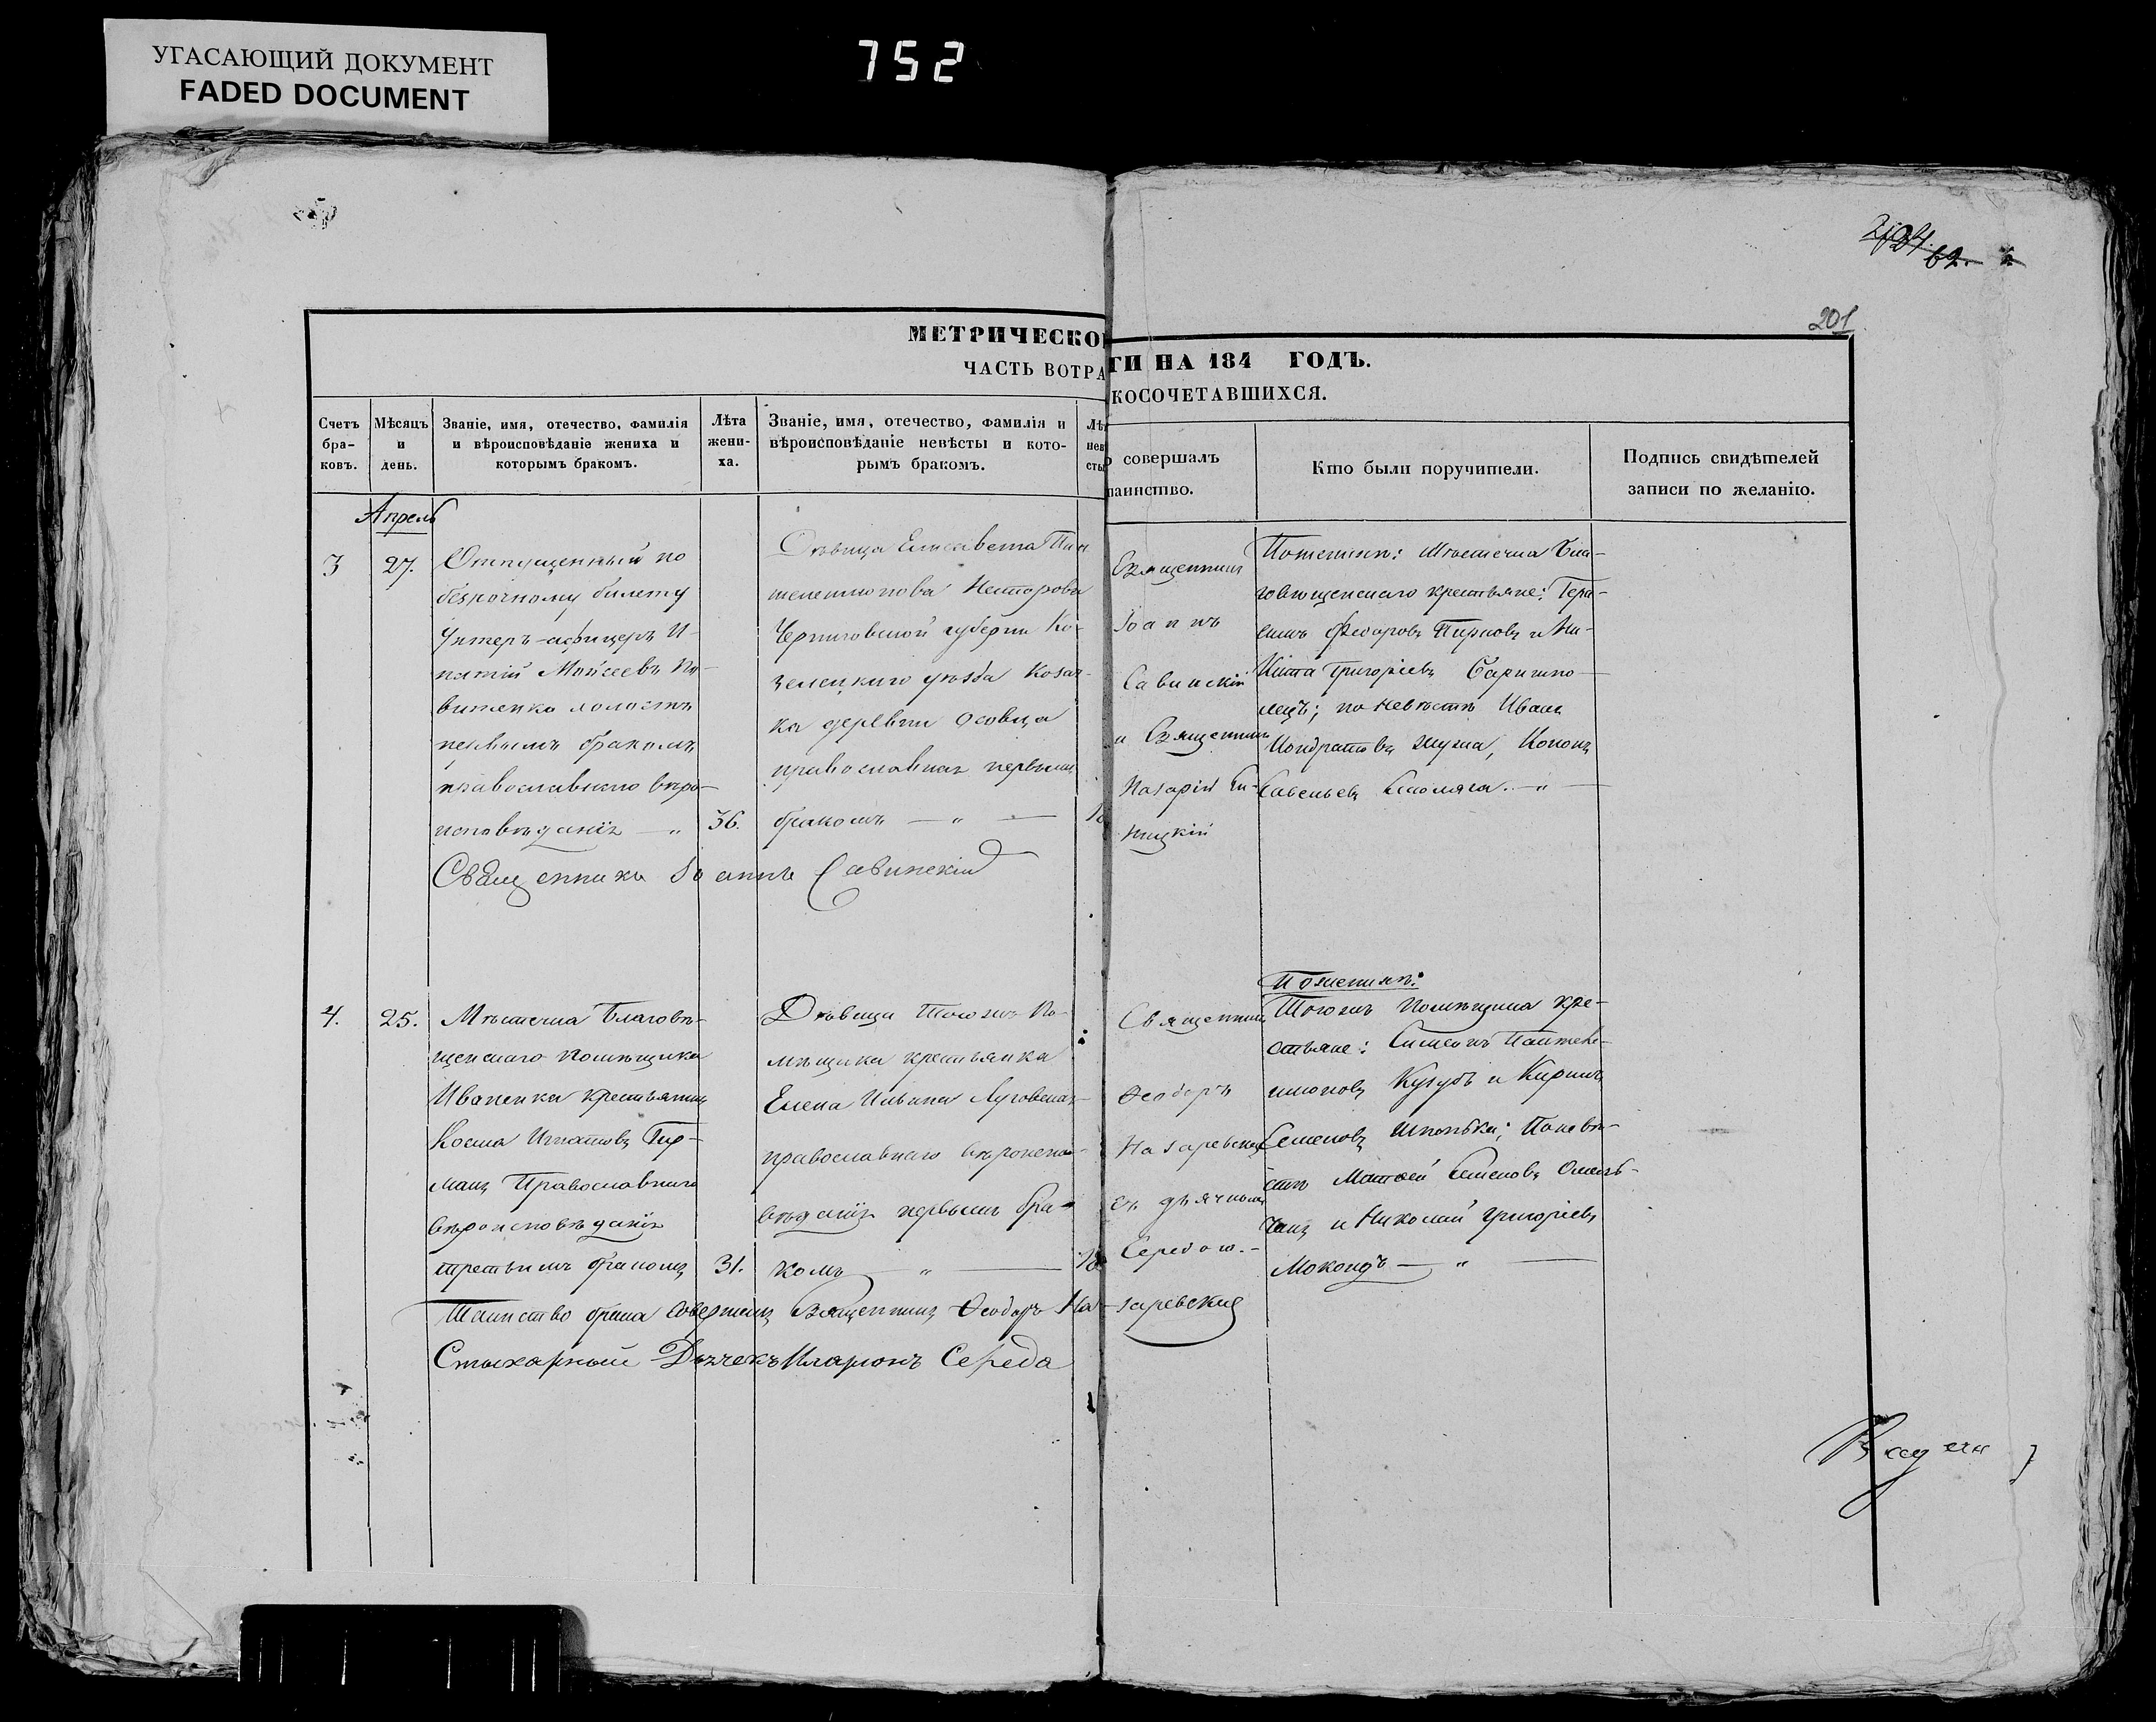 УГАСАЮЩИЙ ДОКУМЕНТ
FADED DOCUMENT
752
201
МЕТРИЧЕСКО
ТИ НА 184 ГОДЪ.
ЧАСТЬ ВОТРА
КОСОЧЕТАВШИХСЯ.
Счетъ бра-ковъ.
Мѣсяцъ и день.
Званіе, имя, отечество, фамилія и вѣроисповѣданіе жениха и которымъ бракомъ.
Лѣта жени-ха.
Званіе, имя, отечество, фамилія и вѣроисповѣданіе невѣсты и кото-рымъ бракомъ.
совершалъ
таинство.
Кто были поручители.
Подпись свидѣтелей записи по желанію.
Апрель
3
27.
Отпущенный по
безрочному билету
Унтеръ-афицеръ И-
патій Моисеевъ
холостъ
первымъ бракомъ
православнаго вѣро-
исповѣданія — „
36.
Дѣвица Елисавета
Несторова
Черниговской губерніи Ко-
зелецкаго уѣзда Козач-
ка деревни Осовца
православная первымъ
бракомъ — „ —
Священникъ
Іоаннъ
Савинскій
и Священникъ
Назарій
ницкій
Мѣстечка Бла-
говѣщенскаго крестьяне: Гера-
симъ Федоровъ и Ни-
кита Григоріевъ
по невѣстѣ Иванъ
Кондратовъ Кононъ
Савельевъ — „ —
Священникъ Іоаннъ Савинскій
4.
25.
Мѣстечка Благовѣ-
щенскаго помѣщика
Иваненка крестьянинъ
Косма Игнатовъ Гур-
манъ Православнаго
вѣроисповѣданія
третьимъ бракомъ
31.
Дѣвица того жъ по-
мѣщика крестьянка
Елена Ильина Луговская
православнаго вѣроиспо-
вѣданія первымъ бра-
комъ — „ —
18
Священникъ
Феодоръ
Назаревскій
съ дьячкомъ
Середою.-
Того жъ помѣщика кре-
стьяне: Симеонъ Пантеле-
имоновъ и Кирилъ
Семеновъ Шпонька; по невѣ-
стѣ Матвей Семеновъ Омель-
чанъ и Николай Григоріевъ
— „ —
Таинство брака совершилъ Священникъ Феодоръ На-заревскій
Стыхарный Дьячекъ Иларіонъ Середа